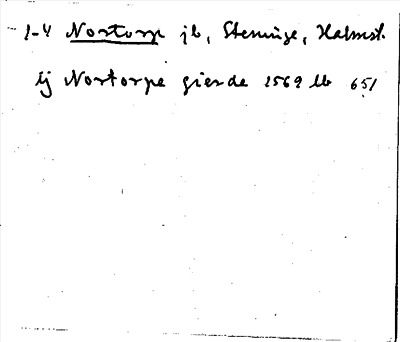 1-4 Nortorp jb, Steninge, Halmst.
ij Nortorpe gierde 1569 lb 651